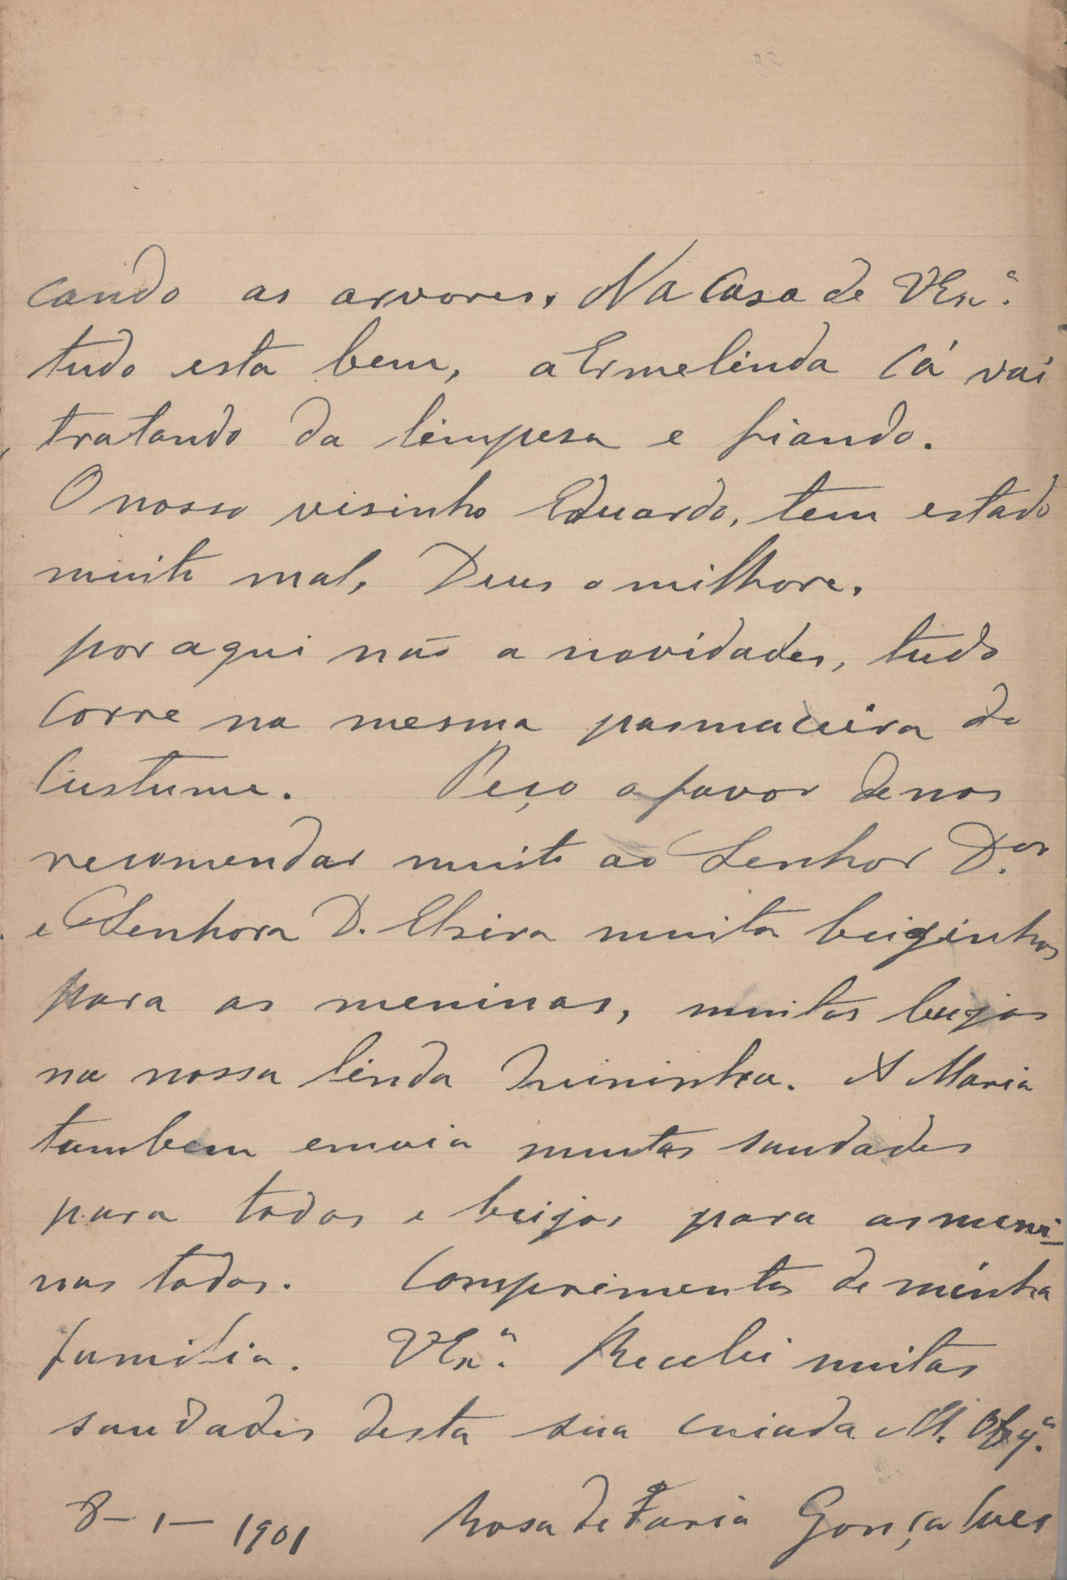 cando as arvores. Na Casa de VExª.
tudo esta bem, a Ermelinda cá vai
tratando da limpesa e fiando.
O nosso visinho Eduardo, tem estado
muito mal, Deus o milhore.
por aqui não a novidades, tudo
corre na mesma pasmaceira do
Custume. Peço o favor de nos
recomendar muito ao Senhor D.or
e Senhora D. Elzira muita beiginhos
para as meninas, muitos beijos
na nossa linda. A Maria
tambem emvia muitas saudades
para todos e beijos para as meni-
nas todas. Comprimentos de minha
familia. VExª. Recebi muitas
saudades desta sua criada M. Obgª.
8-1-1901 Rosa de Faria Gonçalves